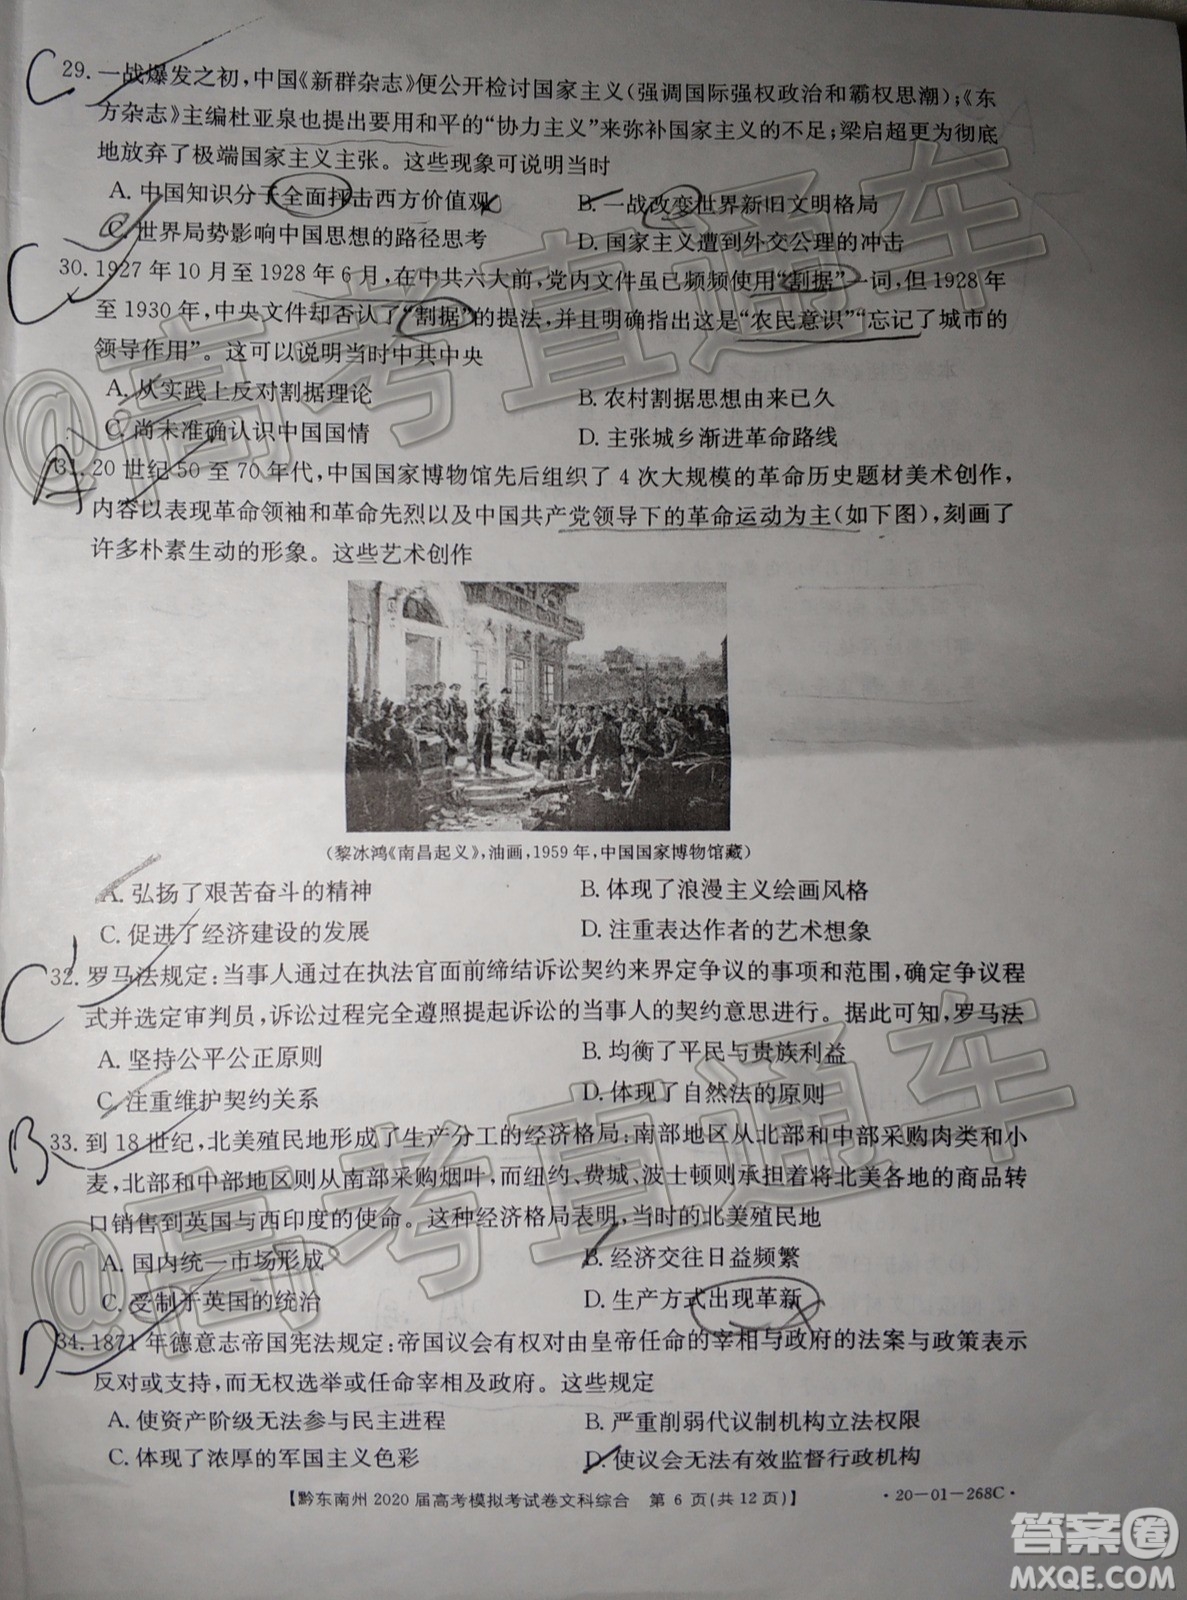 29. 一战爆发之初,中国《新群杂志》便公开检讨国家主义(强调国际强权政治和霸权思潮);《东
方杂志》主编杜亚泉也提出要用和平的“协力主义”来弥补国家主义的不足;梁启超更为彻底
地放弃了极端国家主义主张。这些现象可说明当时
A. 中国知识分子全面抨击西方价值观
B. 一战改变世界新旧文明格局
C. 世界局势影响中国思想的路径思考
D. 国家主义遭到外交公理的冲击
30. 1927 年 10 月至 1928 年 6 月,在中共六大前,党内文件虽已频频使用“割据”一词,但 1928 年
至 1930 年,中央文件却否认了“割据”的提法,并且明确指出这是“农民意识”“忘记了城市的
领导作用”。这可以说明当时中共中央
A. 从实践上反对割据理论
B. 农村割据思想由来已久
C. 尚未准确认识中国国情
D. 主张城乡渐进革命路线
31. 20 世纪 50 至 70 年代,中国国家博物馆先后组织了 4 次大规模的革命历史题材美术创作,
内容以表现革命领袖和革命先烈以及中国共产党领导下的革命运动为主(如下图),刻画了
许多朴素生动的形象。这些艺术创作
(黎冰鸿《南昌起义》,油画,1959 年,中国国家博物馆藏)
A. 弘扬了艰苦奋斗的精神
B. 体现了浪漫主义绘画风格
C. 促进了经济建设的发展
D. 注重表达作者的艺术想象
32. 罗马法规定:当事人通过在执法官面前缔结诉讼契约来界定争议的事项和范围,确定争议程
式并选定审判员,诉讼过程完全遵照提起诉讼的当事人的契约意思进行。据此可知,罗马法
A. 坚持公平公正原则
B. 均衡了平民与贵族利益
C. 注重维护契约关系
D. 体现了自然法的原则
33. 到 18 世纪,北美殖民地形成了生产分工的经济格局:南部地区从北部和中部采购肉类和小
麦,北部和中部地区则从南部采购烟叶,而纽约、费城、波士顿则承担着将北美各地的商品转
口销售到英国与西印度的使命。这种经济格局表明,当时的北美殖民地
A. 国内统一市场形成
B. 经济交往日益频繁
C. 受制于英国的统治
D. 生产方式出现革新
34. 1871 年德意志帝国宪法规定:帝国议会有权对由皇帝任命的宰相与政府的法案与政策表示
反对或支持,而无权选举或任命宰相及政府。这些规定
A. 使资产阶级无法参与民主进程
B. 严重削弱代议制机构立法权限
C. 体现了浓厚的军国主义色彩
D. 使议会无法有效监督行政机构
【黔东南州 2020 届高考模拟考试卷文科综合 第 6 页(共 12 页)】
·20-01-268C·
C
C
A
C
B
D
@高考直通车
@高考直通车
答案圈
MXQE.COM